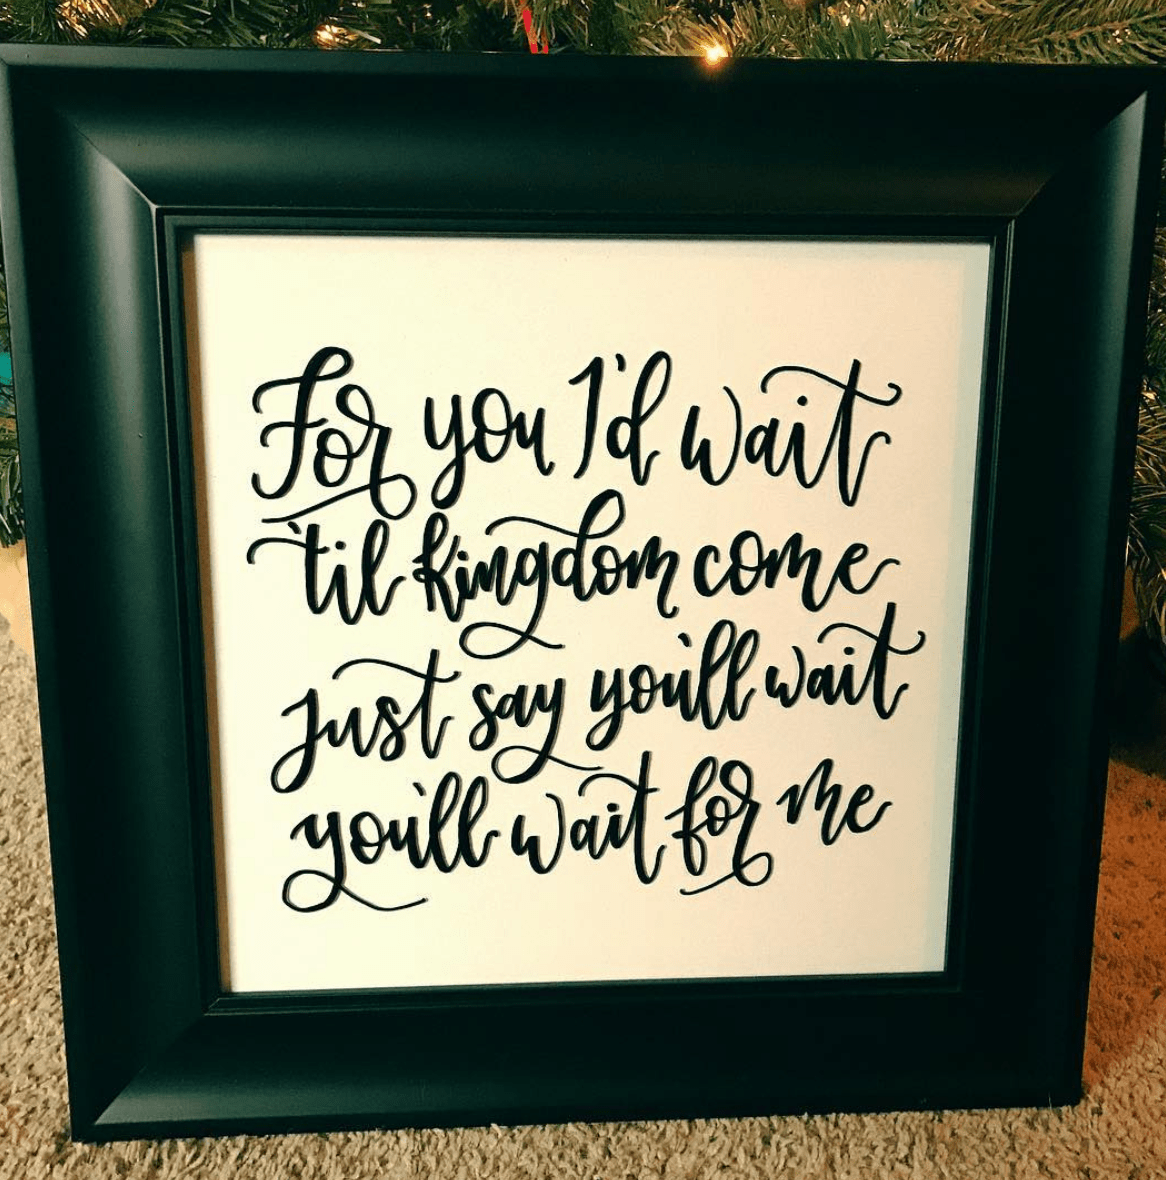 For you I'd wait
'til kingdom come
just say you'll wait
you'll wait for me